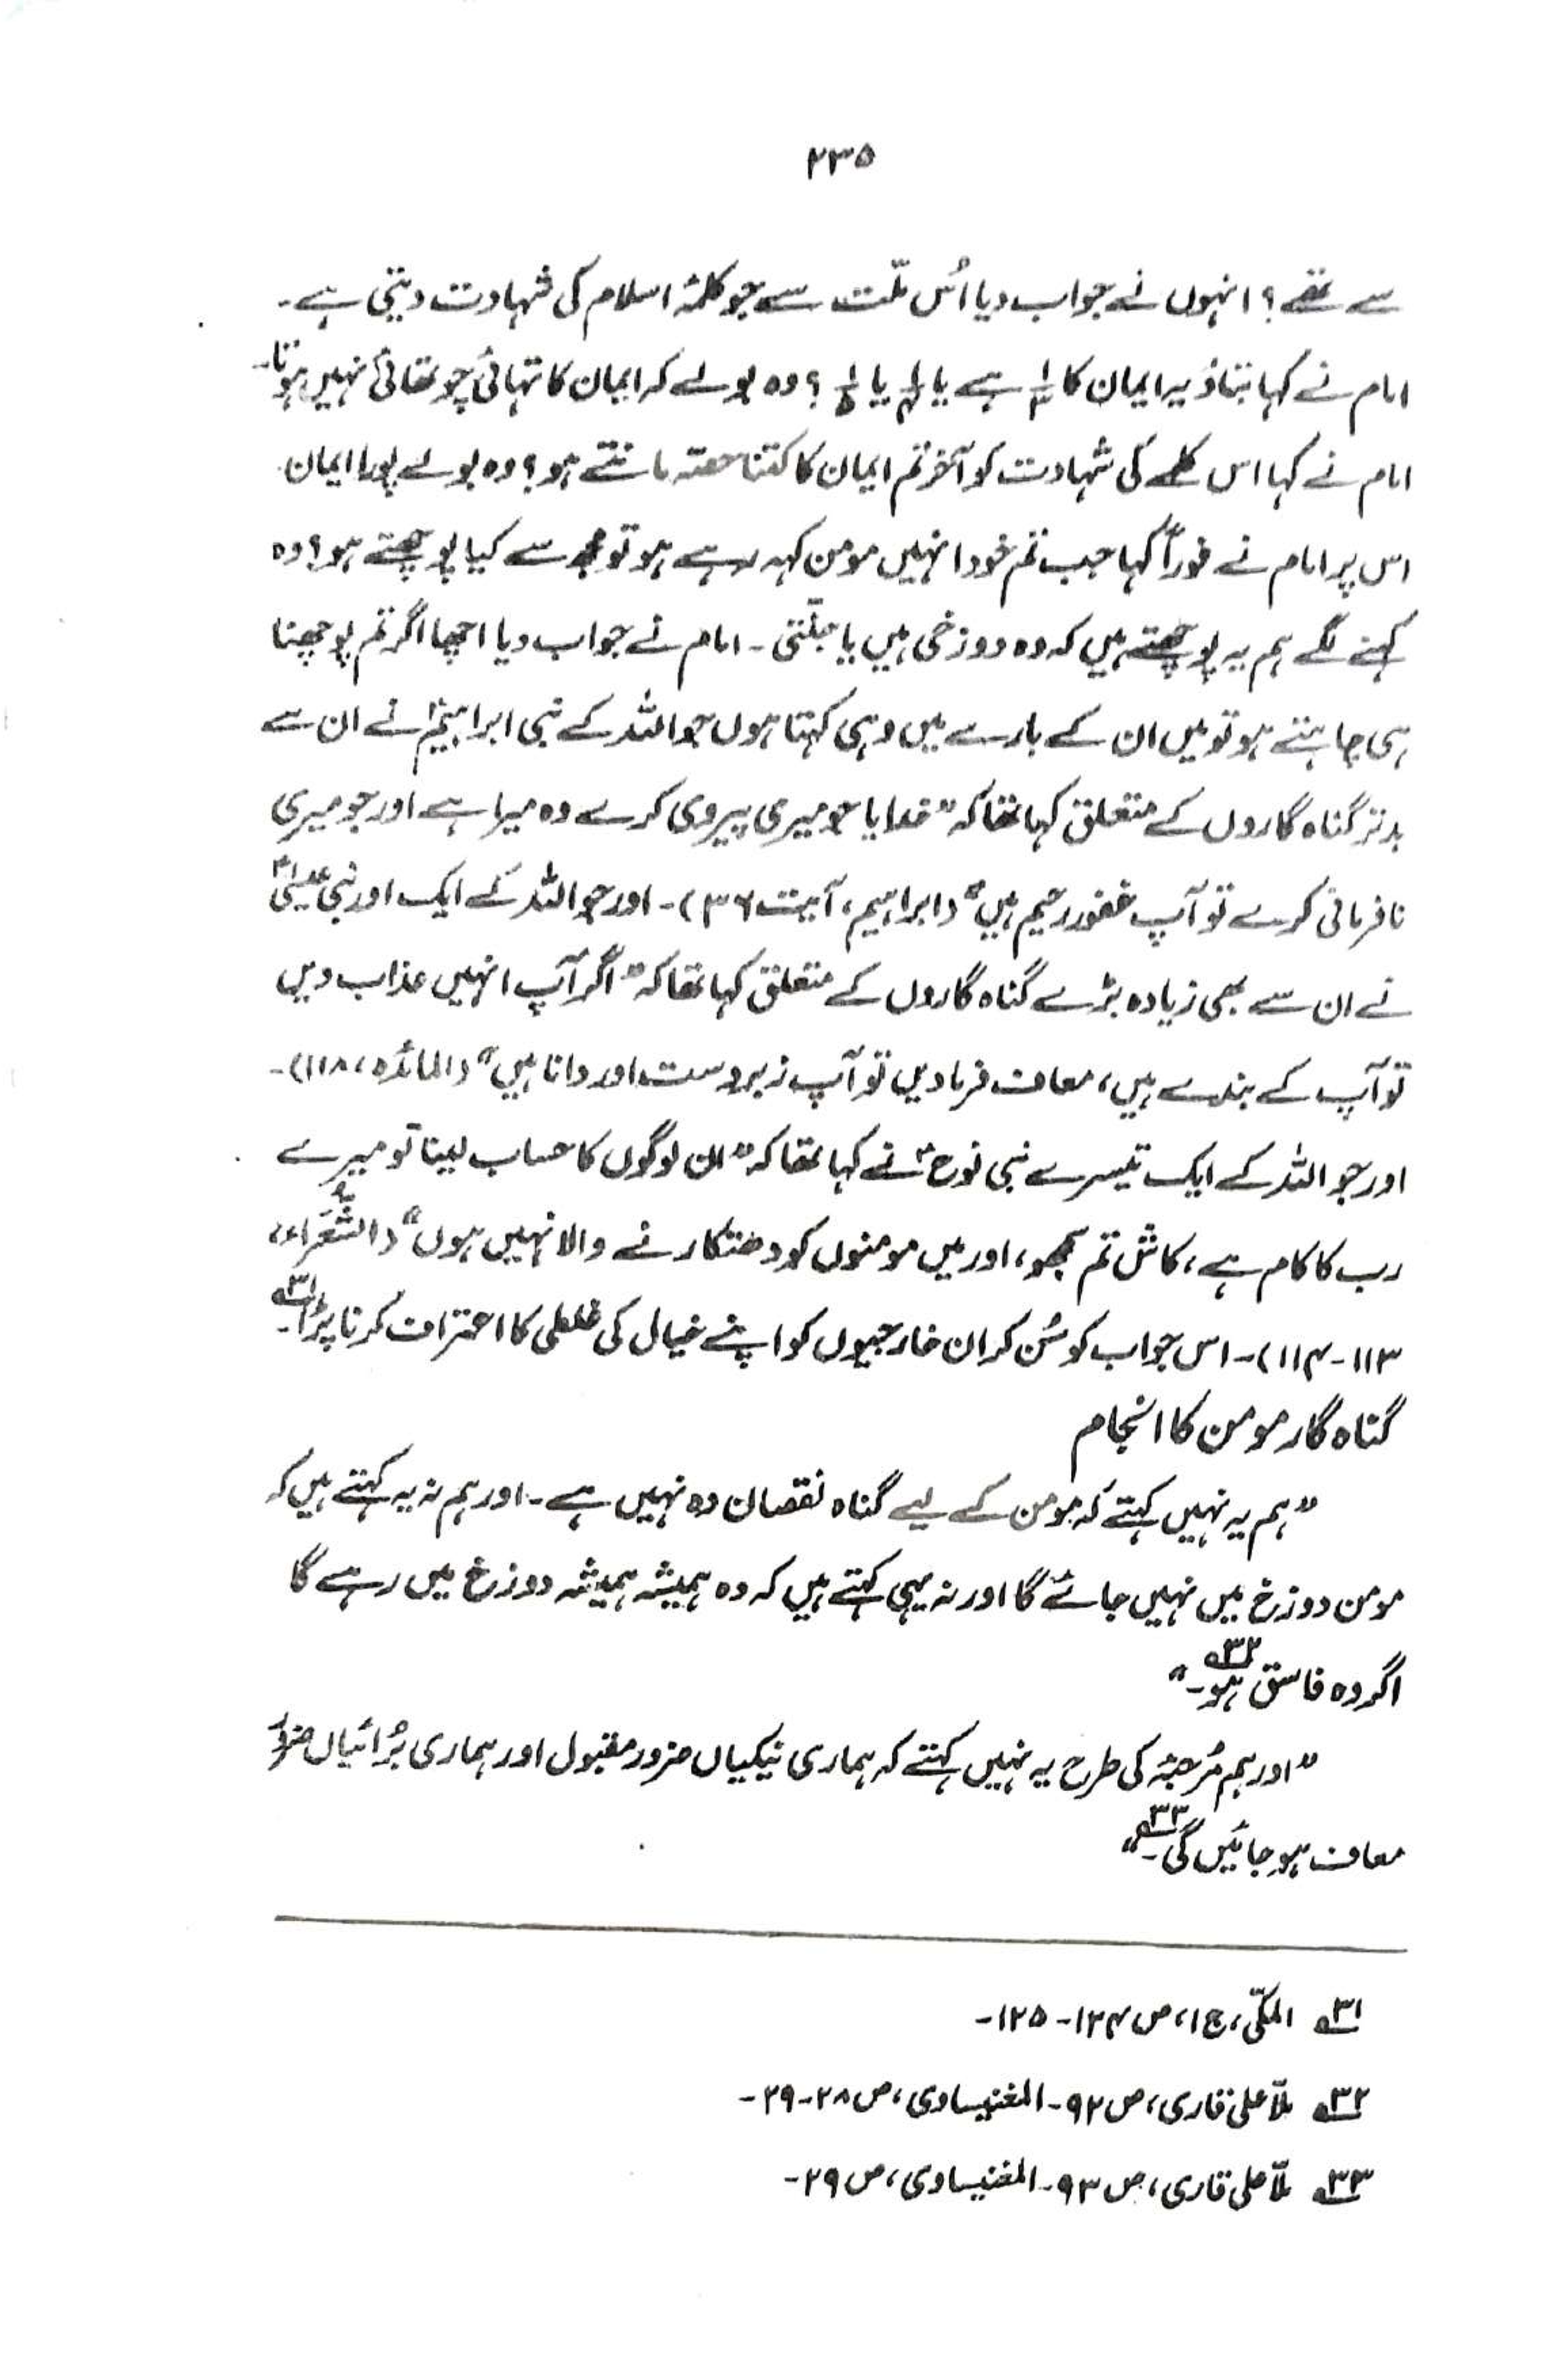 ۲۳۵
سے تھے؟ انہوں نے جواب دیا اُس ملّت سے جو کلمۂ اسلام کی شہادت دیتی ہے۔
امام نے کہا بتاؤ یہ ایمان کا ۱/۳ ہے یا ۱/۴ یا ۱/۵ ؟ وہ بولے کہ ایمان کا تہائی چوتھائی نہیں ہوتا۔
امام نے کہا اس کلمے کی شہادت کو آخر تم ایمان کا کتنا حصّہ مانتے ہو؟ وہ بولے پورا ایمان۔
اس پر امام نے فوراً کہا جب تم خود انہیں مومن کہہ رہے ہو تو مجھ سے کیا پوچھتے ہو؟ وہ
کہنے لگے ہم یہ پوچھتے ہیں کہ وہ دوزخی ہیں یا جنّتی۔ امام نے جواب دیا اچھا اگر تم پوچھنا
ہی چاہتے ہو تو میں ان کے بارے میں وہی کہتا ہوں جو اللہ کے نبی ابراہیمؑ نے ان سے
بدتر گناہ گاروں کے متعلق کہا تھا کہ ”خدایا جو میری پیروی کرے وہ میرا ہے اور جو میری
نافرمانی کرے تو آپ غفور رحیم ہیں“ (ابراہیم، آیت ۳۶)۔ اور جو اللہ کے ایک اور نبی عیسیٰؑ
نے ان سے بھی زیادہ بڑے گناہ گاروں کے متعلق کہا تھا کہ ”اگر آپ انہیں عذاب دیں
تو آپ کے بندے ہیں، معاف فرما دیں تو آپ زبردست اور دانا ہیں“ (المائدہ، ۱۱۸)۔
اور جو اللہ کے ایک تیسرے نبی نوحؑ نے کہا تھا کہ ”ان لوگوں کا حساب لینا تو میرے
رب کا کام ہے، کاش تم سمجھو، اور میں مومنوں کو دھتکارنے والا نہیں ہوں“ (الشُّعَرَاء،
۱۱۳-۱۱۴)۔ اس جواب کو سُن کر ان خارجیوں کو اپنے خیال کی غلطی کا اعتراف کرنا پڑا۔۳۱؎
گناہ گار مومن کا انجام
”ہم یہ نہیں کہتے کہ مومن کے لیے گناہ نقصان دہ نہیں ہے۔ اور ہم نہ یہ کہتے ہیں کہ
مومن دوزخ میں نہیں جائے گا اور نہ یہی کہتے ہیں کہ وہ ہمیشہ ہمیشہ دوزخ میں رہے گا
اگر وہ فاسق ہو۔۳۲؎“
”اور ہم مُرجِئہ کی طرح یہ نہیں کہتے کہ ہماری نیکیاں ضرور مقبول اور ہماری بُرائیاں ضرور
معاف ہو جائیں گی۔۳۳؎“
۳۱؎ المکّی، ج ۱، ص ۱۲۴-۱۲۵۔
۳۲؎ ملّا علی قاری، ص ۹۲۔ المغنیساوی، ص ۲۸-۲۹۔
۳۳؎ ملّا علی قاری، ص ۹۳۔ المغنیساوی، ص ۲۹۔